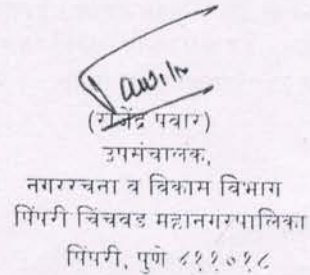 (राजेंद्र पवार)
उपसंचालक,
नगररचना व विकास विभाग
पिंपरी चिंचवड महानगरपालिका
पिंपरी, पुणे ४११०१८